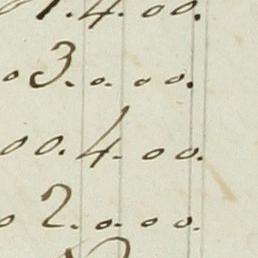 1.4.00.
03.0.00.
00.4.00.
02.0.00.